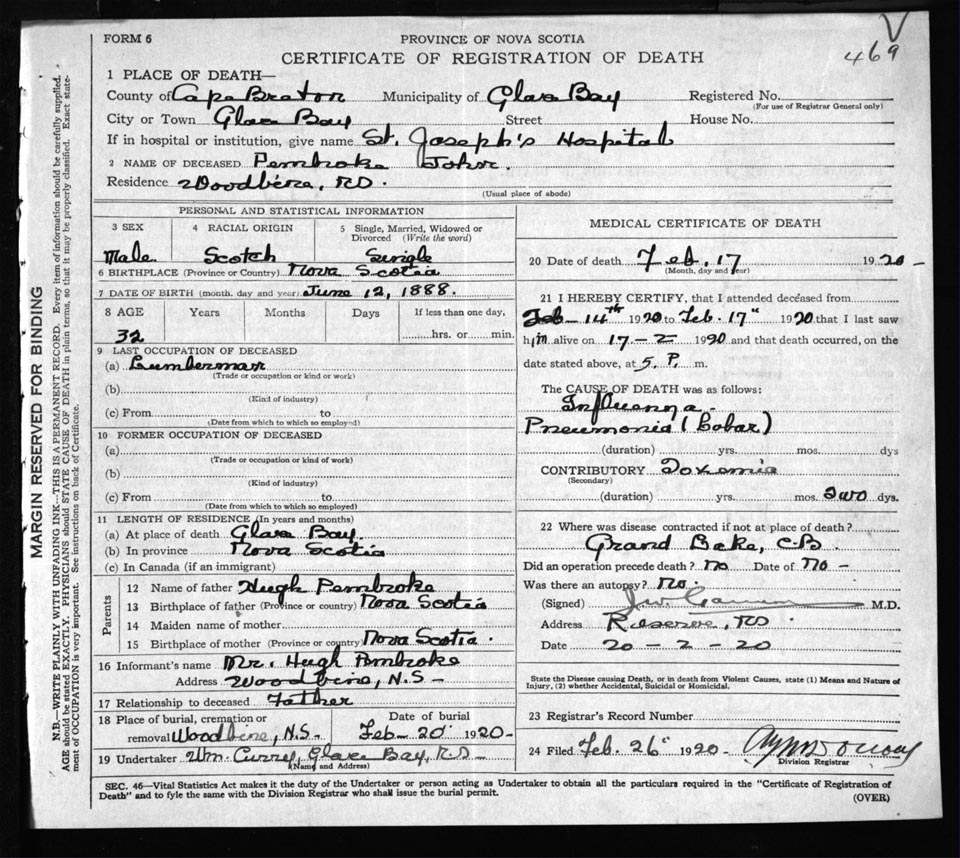 FORM 6
PROVINCE OF NOVA SCOTIA
469
CERTIFICATE OF REGISTRATION OF DEATH
1 PLACE OF DEATH—
County of Cape Breton Municipality of Glace Bay Registered No.
(For use of Registrar General only)
City or Town Glace Bay Street House No.
If in hospital or institution, give name St. Joseph's Hospital
2 NAME OF DECEASED Pembroke John.
Residence Woodbine, NS.
(Usual place of abode)
PERSONAL AND STATISTICAL INFORMATION
3 SEX 4 RACIAL ORIGIN 5 Single, Married, Widowed or Divorced (Write the word)
Male. Scotch Single
6 BIRTHPLACE (Province or Country) Nova Scotia
7 DATE OF BIRTH (month, day and year) June 12, 1888.
8 AGE Years Months Days If less than one day,
32 hrs. or min.
9 LAST OCCUPATION OF DECEASED
(a) Lumberman
(Trade or occupation or kind or work)
(b)
(Kind of industry)
(c) From to
(Date from which to which so employed)
10 FORMER OCCUPATION OF DECEASED
(a)
(Trade or occupation or kind of work)
(b)
(Kind of industry)
(c) From to
(Date from which to which so employed)
11 LENGTH OF RESIDENCE (In years and months)
(a) At place of death Glace Bay.
(b) In province Nova Scotia
(c) In Canada (if an immigrant)
Parents
12 Name of father Hugh Pembroke
13 Birthplace of father (Province or country) Nova Scotia
14 Maiden name of mother
15 Birthplace of mother (Province or country) Nova Scotia.
16 Informant's name Mr. Hugh Pembroke
Address Woodbine, N.S -
17 Relationship to deceased Father
18 Place of burial, cremation or removal Woodbine, N.S - Date of burial Feb - 20 1920 -
19 Undertaker Wm. Curry, Glace Bay, NS -
(Name and Address)
MEDICAL CERTIFICATE OF DEATH
20 Date of death Feb, 17 1920 -
(Month, day and year)
21 I HEREBY CERTIFY, that I attended deceased from
Feb - 14th 1920 to Feb. 17" 1920 that I last saw
him alive on 17 - 2 1920 and that death occurred, on the
date stated above, at 5. P. m.
The CAUSE OF DEATH was as follows:
Influenza.
Pneumonia (Lobar)
(duration) yrs. mos. dys
CONTRIBUTORY Toxemia
(Secondary)
(duration) yrs. mos. Two dys.
22 Where was disease contracted if not at place of death?
Grand Lake, C-B
Did an operation precede death? No Date of No -
Was there an autopsy? No.
(Signed) M.D.
Address Reserve, NS
Date 20 - 2 - 20
State the Disease causing Death, or in death from Violent Causes, state (1) Means and Nature of
Injury, (2) whether Accidental, Suicidal or Homicidal.
23 Registrar's Record Number
24 Filed Feb. 26" 1920
Division Registrar
SEC. 46—Vital Statistics Act makes it the duty of the Undertaker or person acting as Undertaker to obtain all the particulars required in the "Certificate of Registration of
Death" and to fyle the same with the Division Registrar who shall issue the burial permit.
(OVER)
MARGIN RESERVED FOR BINDING
N.B.—WRITE PLAINLY WITH UNFADING INK—THIS IS A PERMANENT RECORD. Every item of information should be carefully supplied.
AGE should be stated EXACTLY. PHYSICIANS should STATE CAUSE OF DEATH in plain terms, so that it may be properly classified. Exact state-
ment of OCCUPATION is very important. See instructions on back of Certificate.